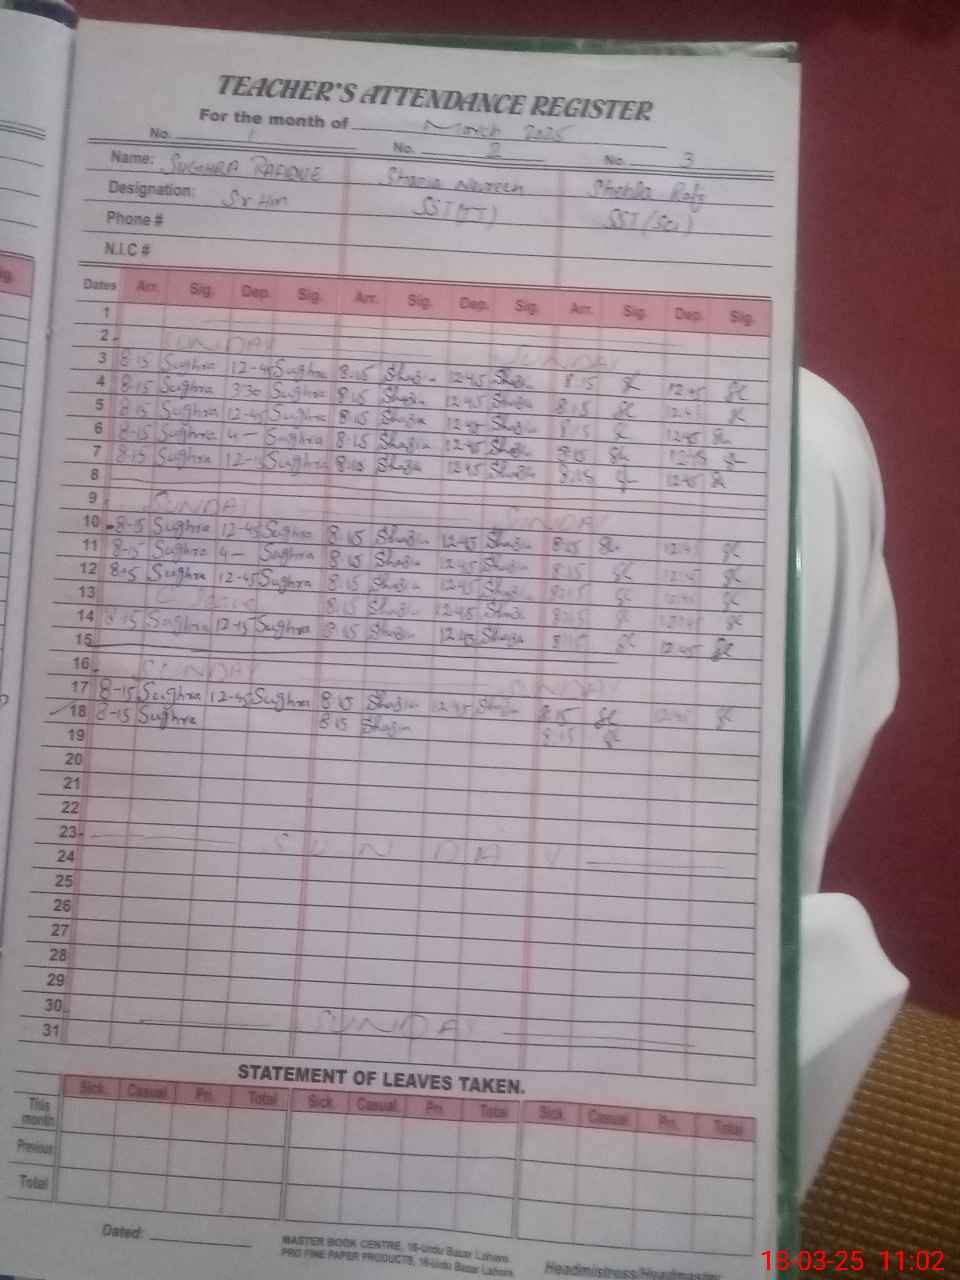 TEACHER'S ATTENDANCE REGISTER
For the month of March 2025
No. 1 No. 2 No. 3
Name: SUGHRA RAFIQUE Shazia Nasreen Shahla
Designation: Sr Hm SST(IT) SST (Sci)
Phone #
N.I.C #
Dates Arr. Sig. Dep. Sig. Arr. Sig. Dep. Sig. Arr. Sig. Dep. Sig.
1
2 SUNDAY SUNDAY
3 8-15 Sughra 12-45 Sughra 8:15 Shazia 12:45 Shazia 8:15 12:45
4 8-15 Sughra 3:30 Sughra 8:15 Shazia 12:45 Shazia 8:15 12:45
5 8-15 Sughra 12-45 Sughra 8:15 Shazia 12:45 Shazia 8:15 12:45
6 8-15 Sughra 4- Sughra 8:15 Shazia 12:45 Shazia 8:15 12:45
7 8-15 Sughra Sughra 8:15 Shazia 12:45 Shazia 8:15 12:45
8
9 SUNDAY SUNDAY
10 8-15 Sughra 12-45 Sughra 8:15 Shazia 12:45 Shazia 8:15 12:45
11 8-15 Sughra 4- Sughra 8:15 Shazia 12:45 Shazia 8:15 12:45
12 8-15 Sughra 12-45 Sughra 8:15 Shazia 12:45 Shazia 8:15 12:45
13 8:15 Shazia 12:45 Shazia 8:15 12:45
14 8-15 Sughra 12-15 Sughra 8:15 Shazia 12:45 Shazia 8:15 12:45
15
16 SUNDAY SUNDAY
17 8-15 Sughra 12-45 Sughra 8:15 Shazia 12:45 Shazia 8:15 12:45
18 8-15 Sughra 8:15 Shazia 8:15
19
20
21
22
23 SUNDAY
24
25
26
27
28
29
30 SUNDAY
31
STATEMENT OF LEAVES TAKEN.
Sick. Casual. Pri. Total Sick. Casual. Pri. Total Sick. Casual. Pri. Total
This month
Previous
Total
Dated:
MASTER BOOK CENTRE, 16-Urdu Bazar Lahore.
PRO FINE PAPER PRODUCTS, 16-Urdu Bazar Lahore.
Headmistress/Headmaster
18-03-25 11:02